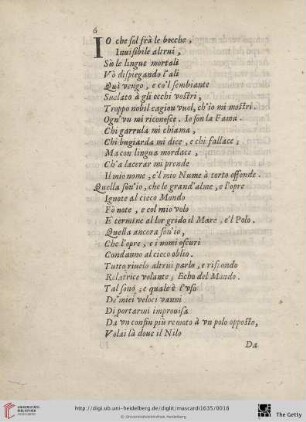 6
IO che sol frà le bocche,
Inuisibile altrui,
Sù le lingue mortali
Vò dispiegando l'ali
Quì vengo, e co'l sembiante
Suelato à gli occhi vostri,
Troppo nobil cagion vuol, ch'io mi mostri.
Ogn'vn mi riconosce. Io son la Fama.
Chi garrula mi chiama,
Chi bugiarda mi dice, e chi fallace;
Ma con lingua mordace,
Ch'a lacerar mi prende
Il mio nome, e'l mio Nume à torto offende.
Quella son'io, che le grand'alme, e l'opre
Ignote al cieco Mondo
Fò note, e col mio volo
E termine al lor grido il Mare, e'l Polo.
Quella ancora son'io,
Che l'opre, e i nomi oscuri
Condanno al cieco oblio.
Tutto riuelo altrui parlo, e rispondo
Relatrice volante, Echo del Mondo.
Tal sono, e qual'è l'vso
De'miei veloci vanni
Di portarmi improuisa
Da vn confin più remoto à vn polo opposto,
Volai là doue il Nilo
Da
http://digi.ub.uni-heidelberg.de/diglit/mascardi1635/0016
© Universitätsbibliothek Heidelberg
UNIVERSITÄTS-
BIBLIOTHEK
HEIDELBERG
The Getty